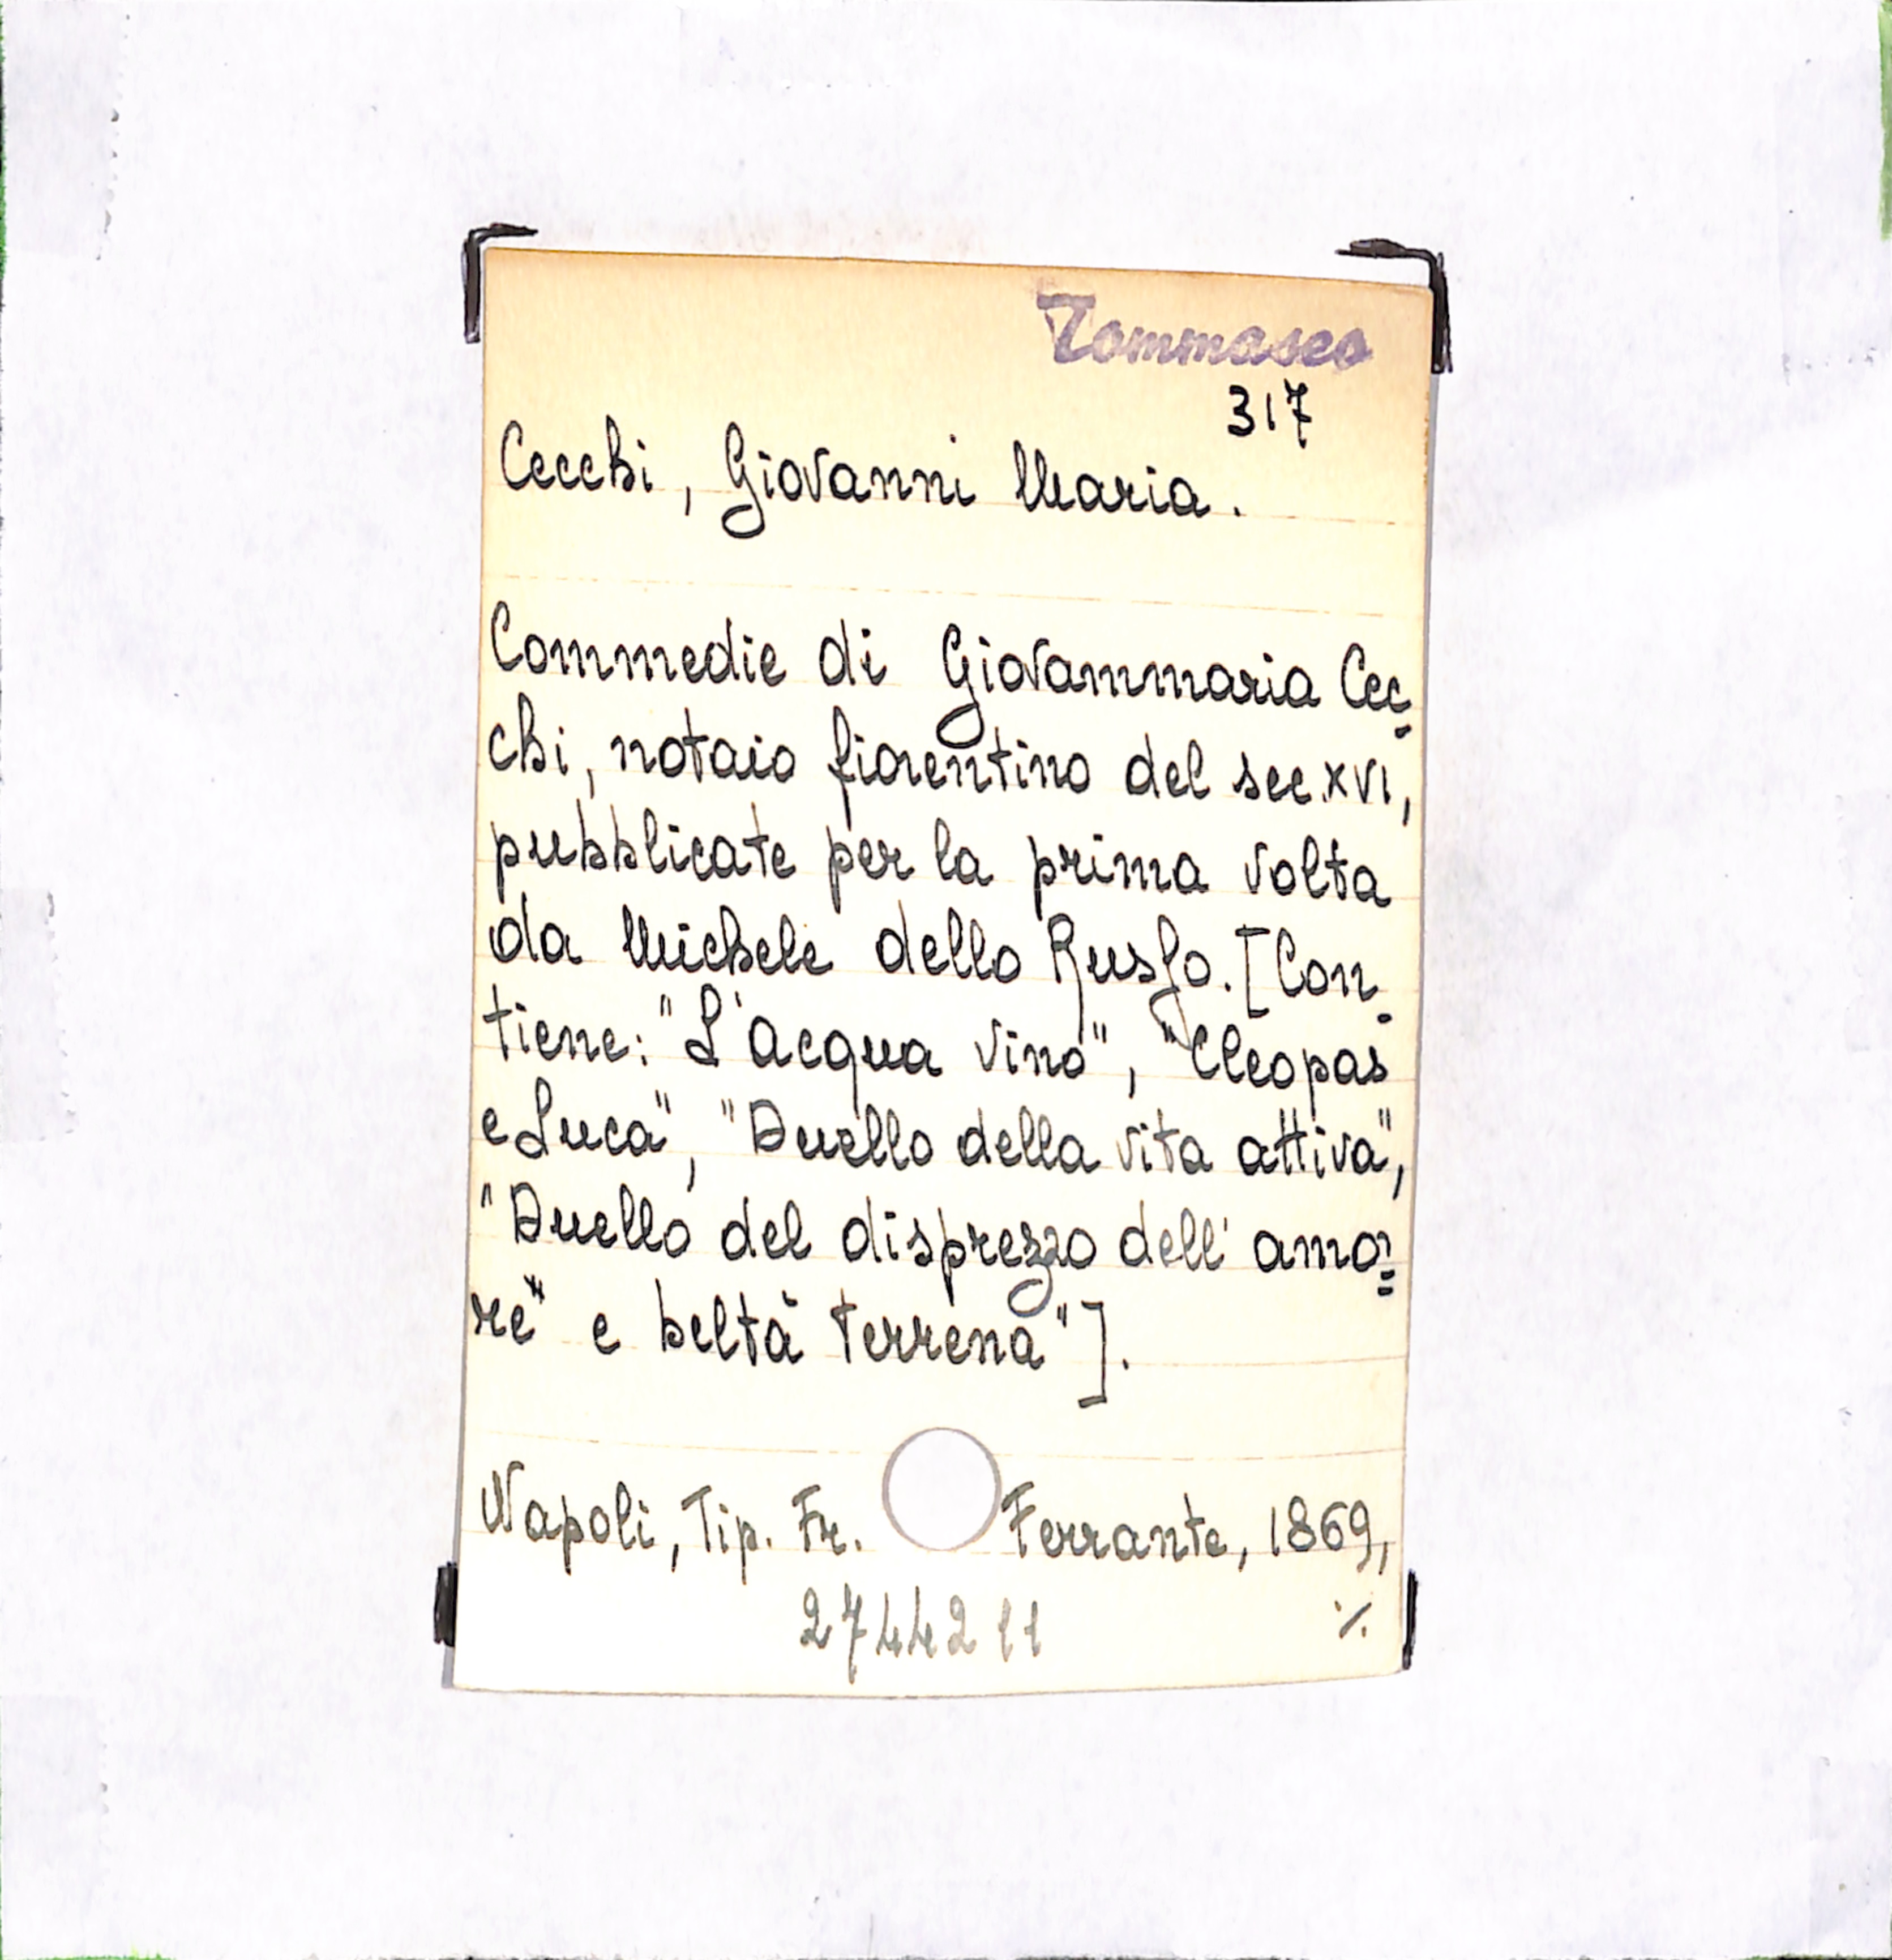 Tommaseo
317
Cecchi, Giovanni Maria.
Commedie di Giovammaria Cec-
chi, notaio fiorentino del sec. XVI,
pubblicate per la prima volta
da Michele dello Russo. [Con-
tiene: "L'acqua vino", "Cleopas
e Luca", "Duello della vita attiva",
"Duello del disprezzo dell'amo=
re" e beltà terrena"].
Napoli, Tip. Fr. Ferrante, 1869,
2744211 ./.